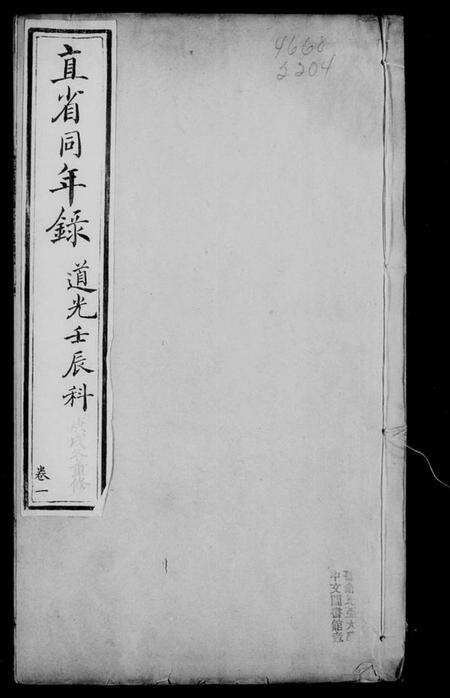 直省同年錄
道光壬辰科
卷一
4668
3204
中文圖書館